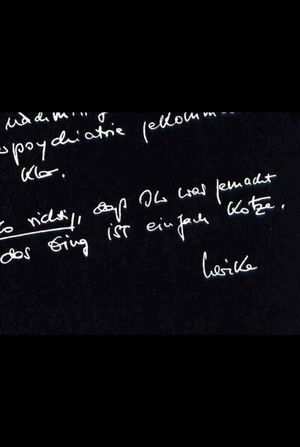 psychiatrie gekomm
klar.
so richtig, daß Ihr was gemacht
das Ging ist einfach Kotze.
Ulrike